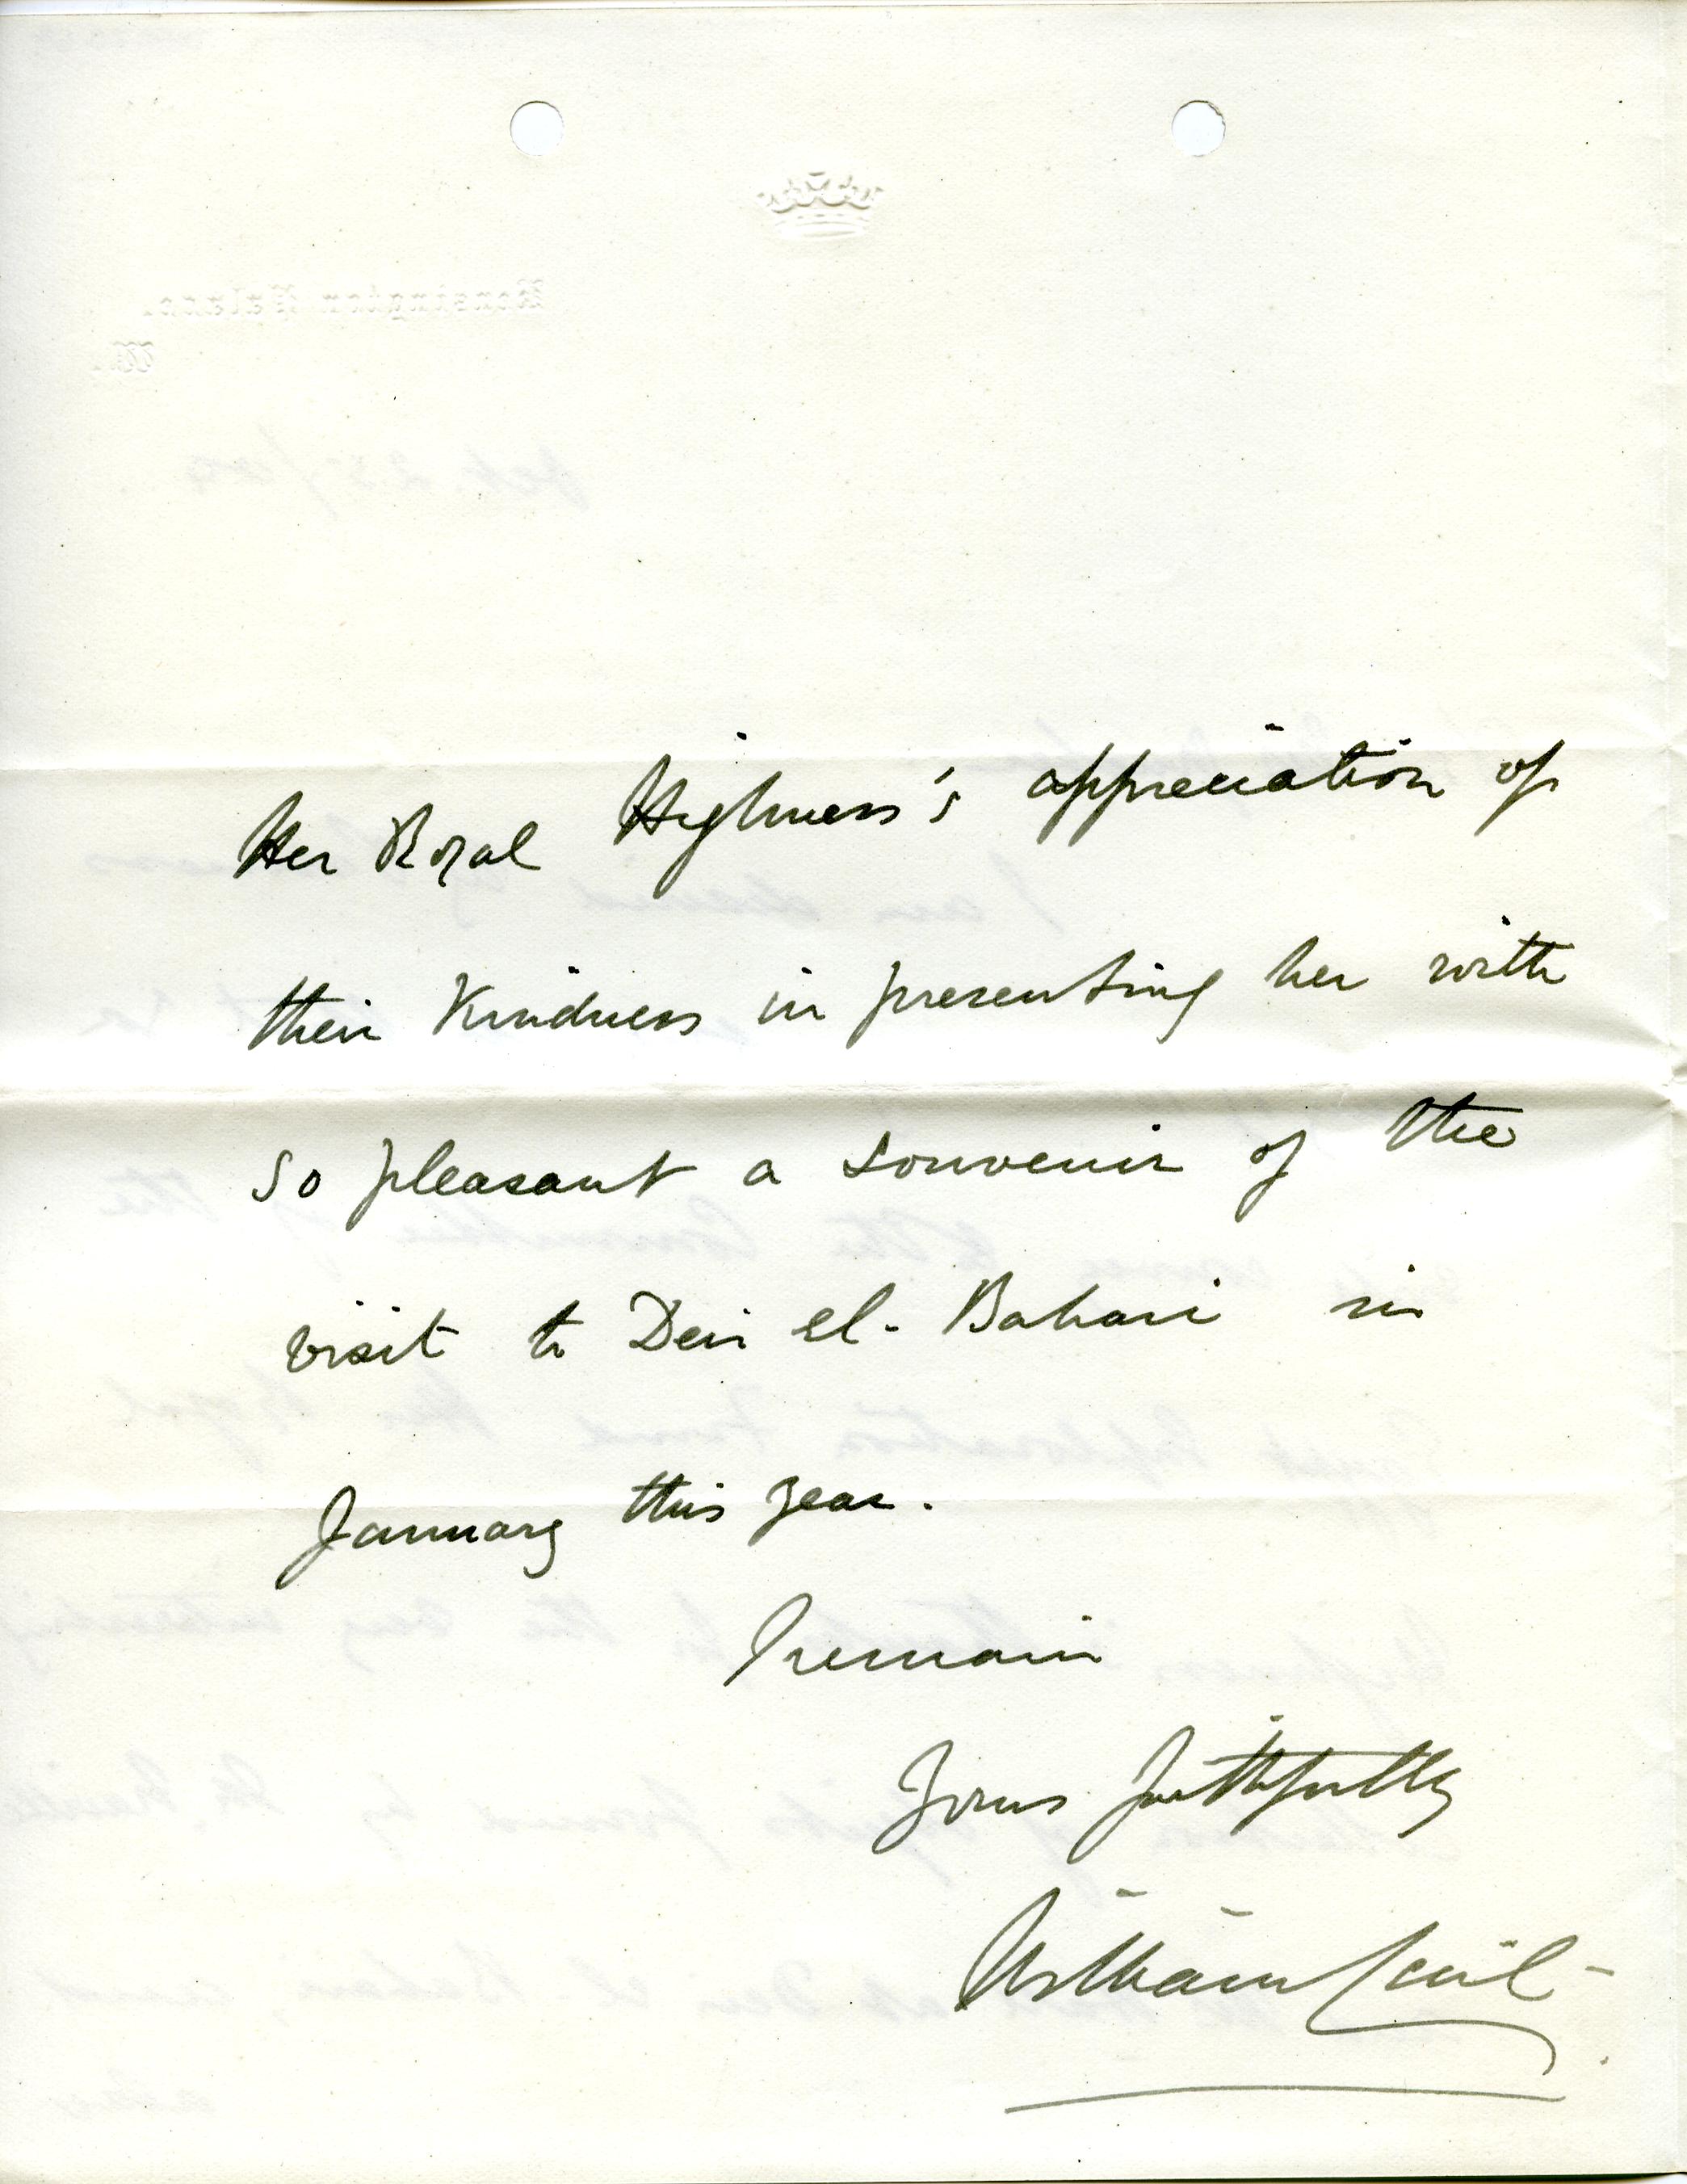 Her Royal Highness's appreciation of
their kindness in presenting her with
so pleasant a souvenir of the
visit to Deir el-Bahari in
January this year.
I remain
Yours faithfully
William Cecil